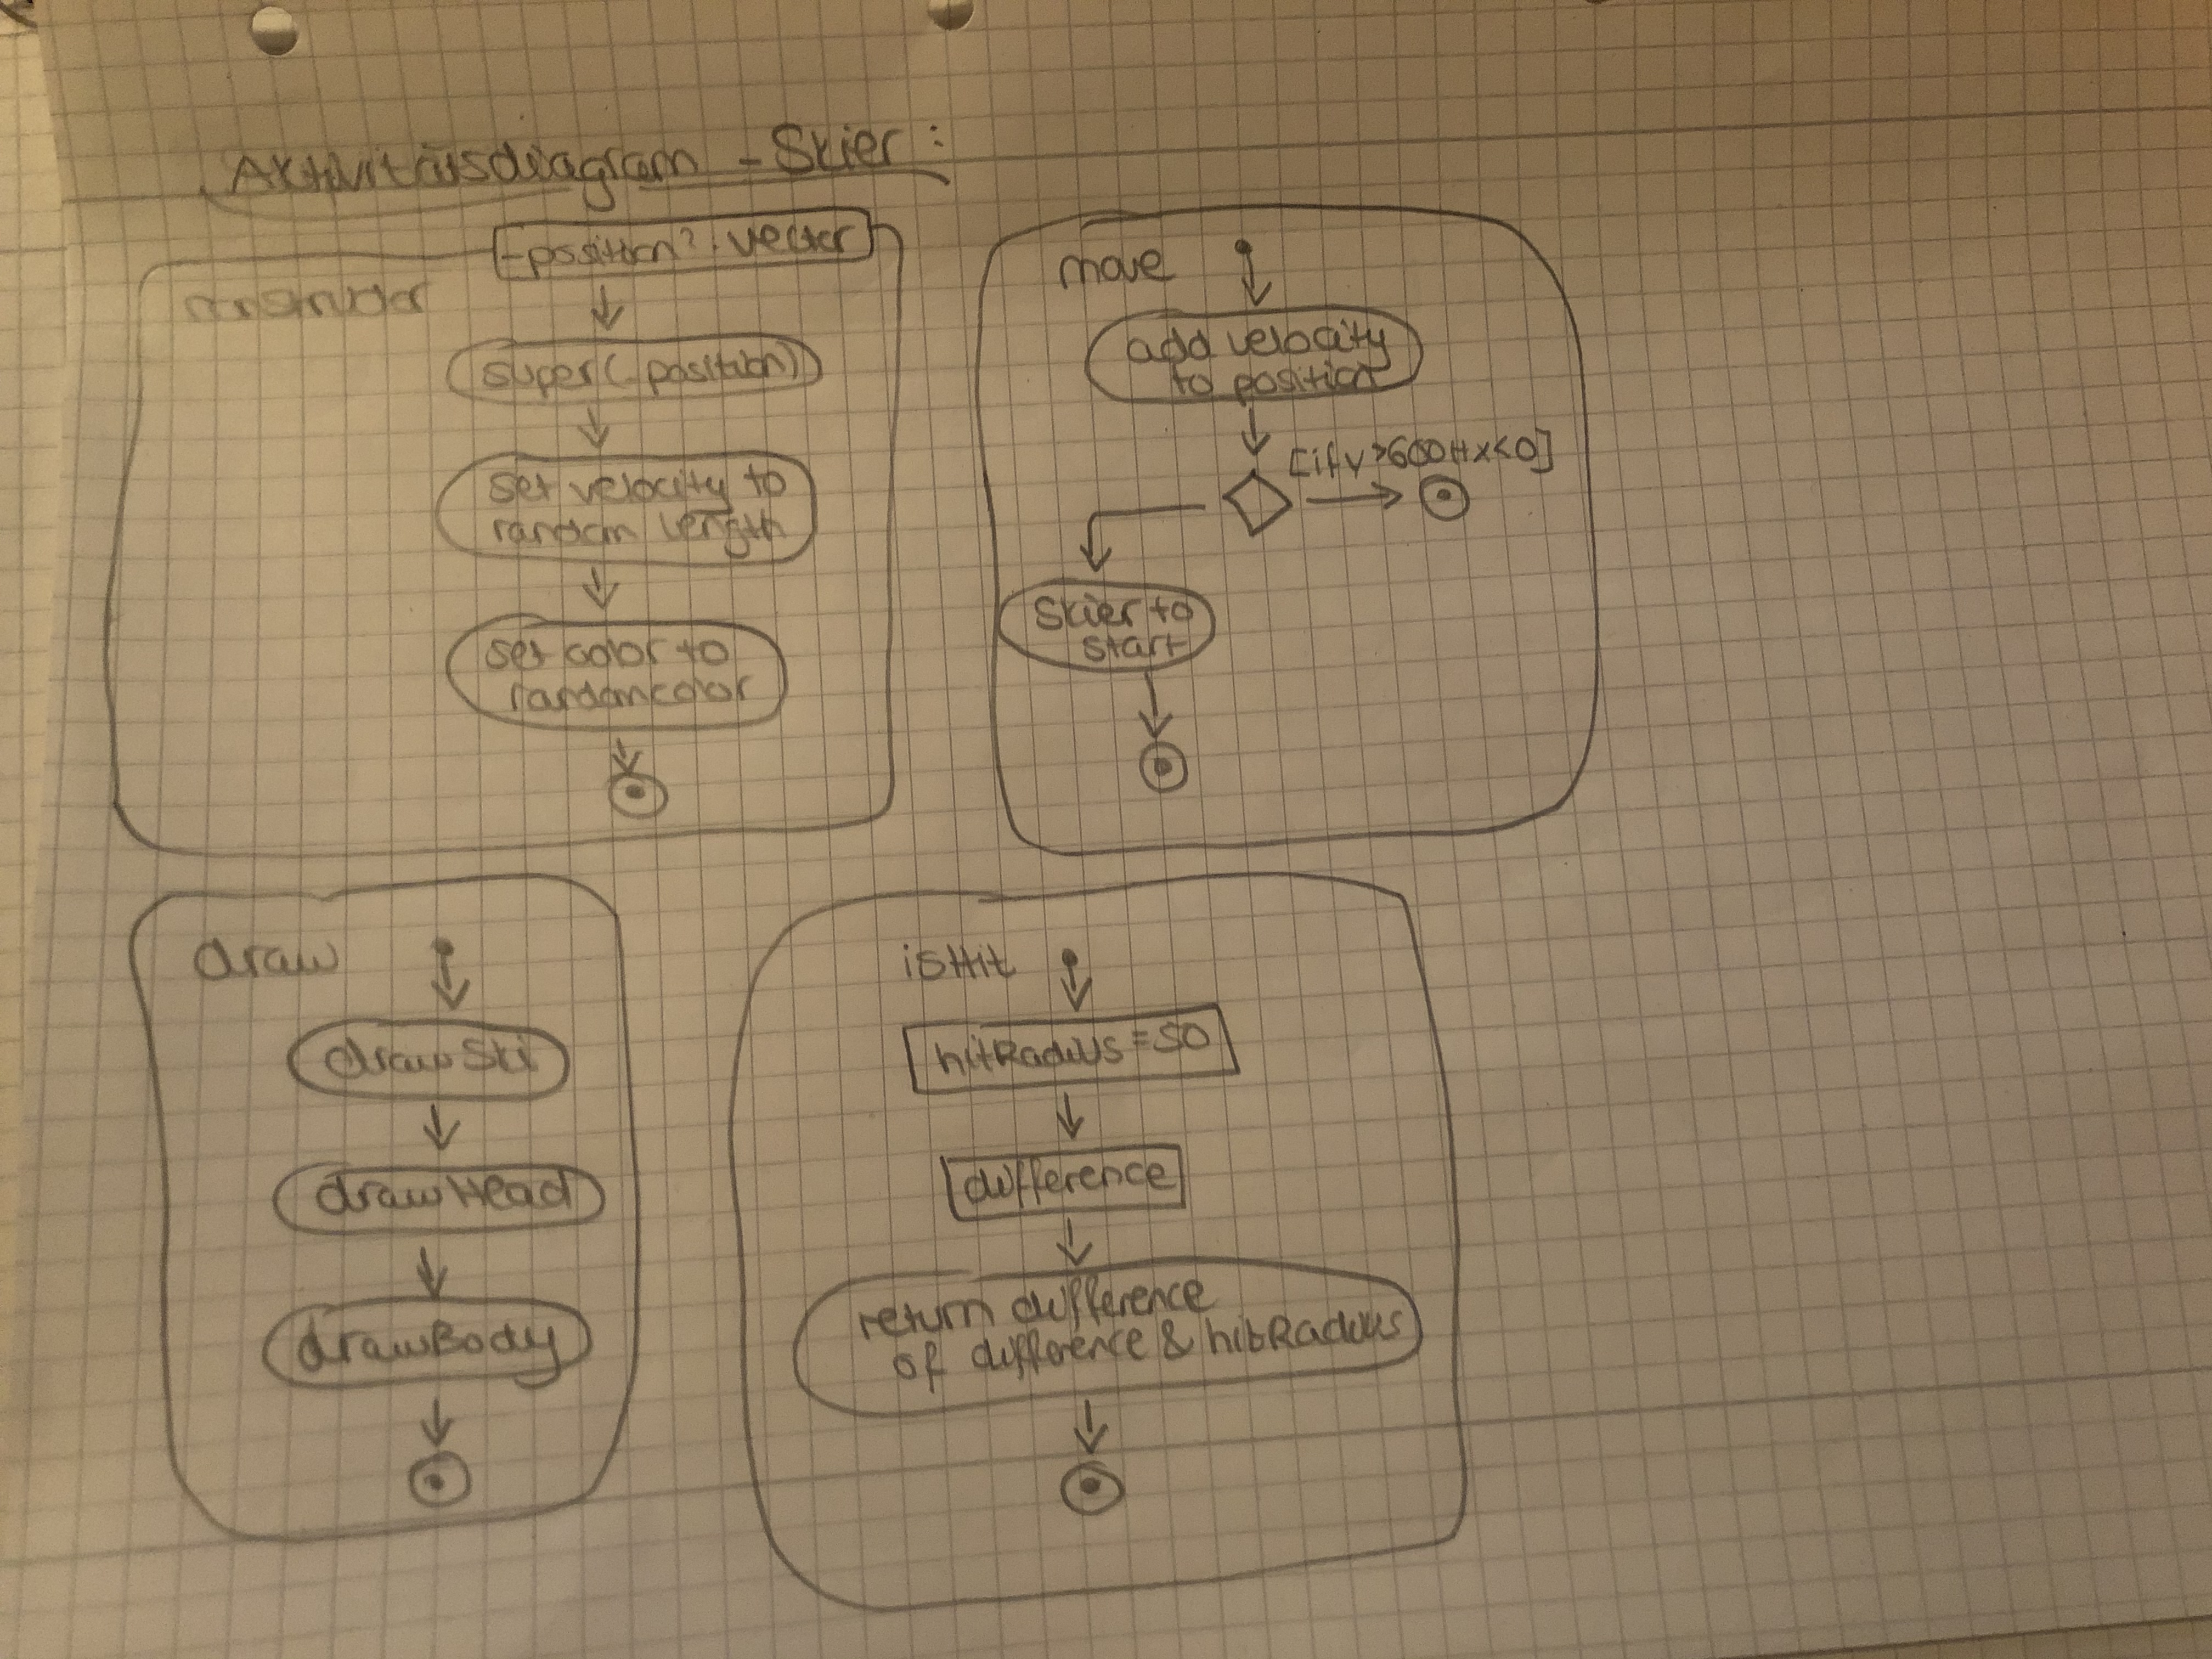 Aktivitätsdiagram - Skier:
-position?: vector
super(position)
set velocity to
random length
set color to
random color
move
add velocity
to position
[if y >600 || x<0]
Skier to
start
draw
draw Ski
draw Head
draw Body
isHit
hitRadius = 50
difference
return difference
of difference & hitRadius